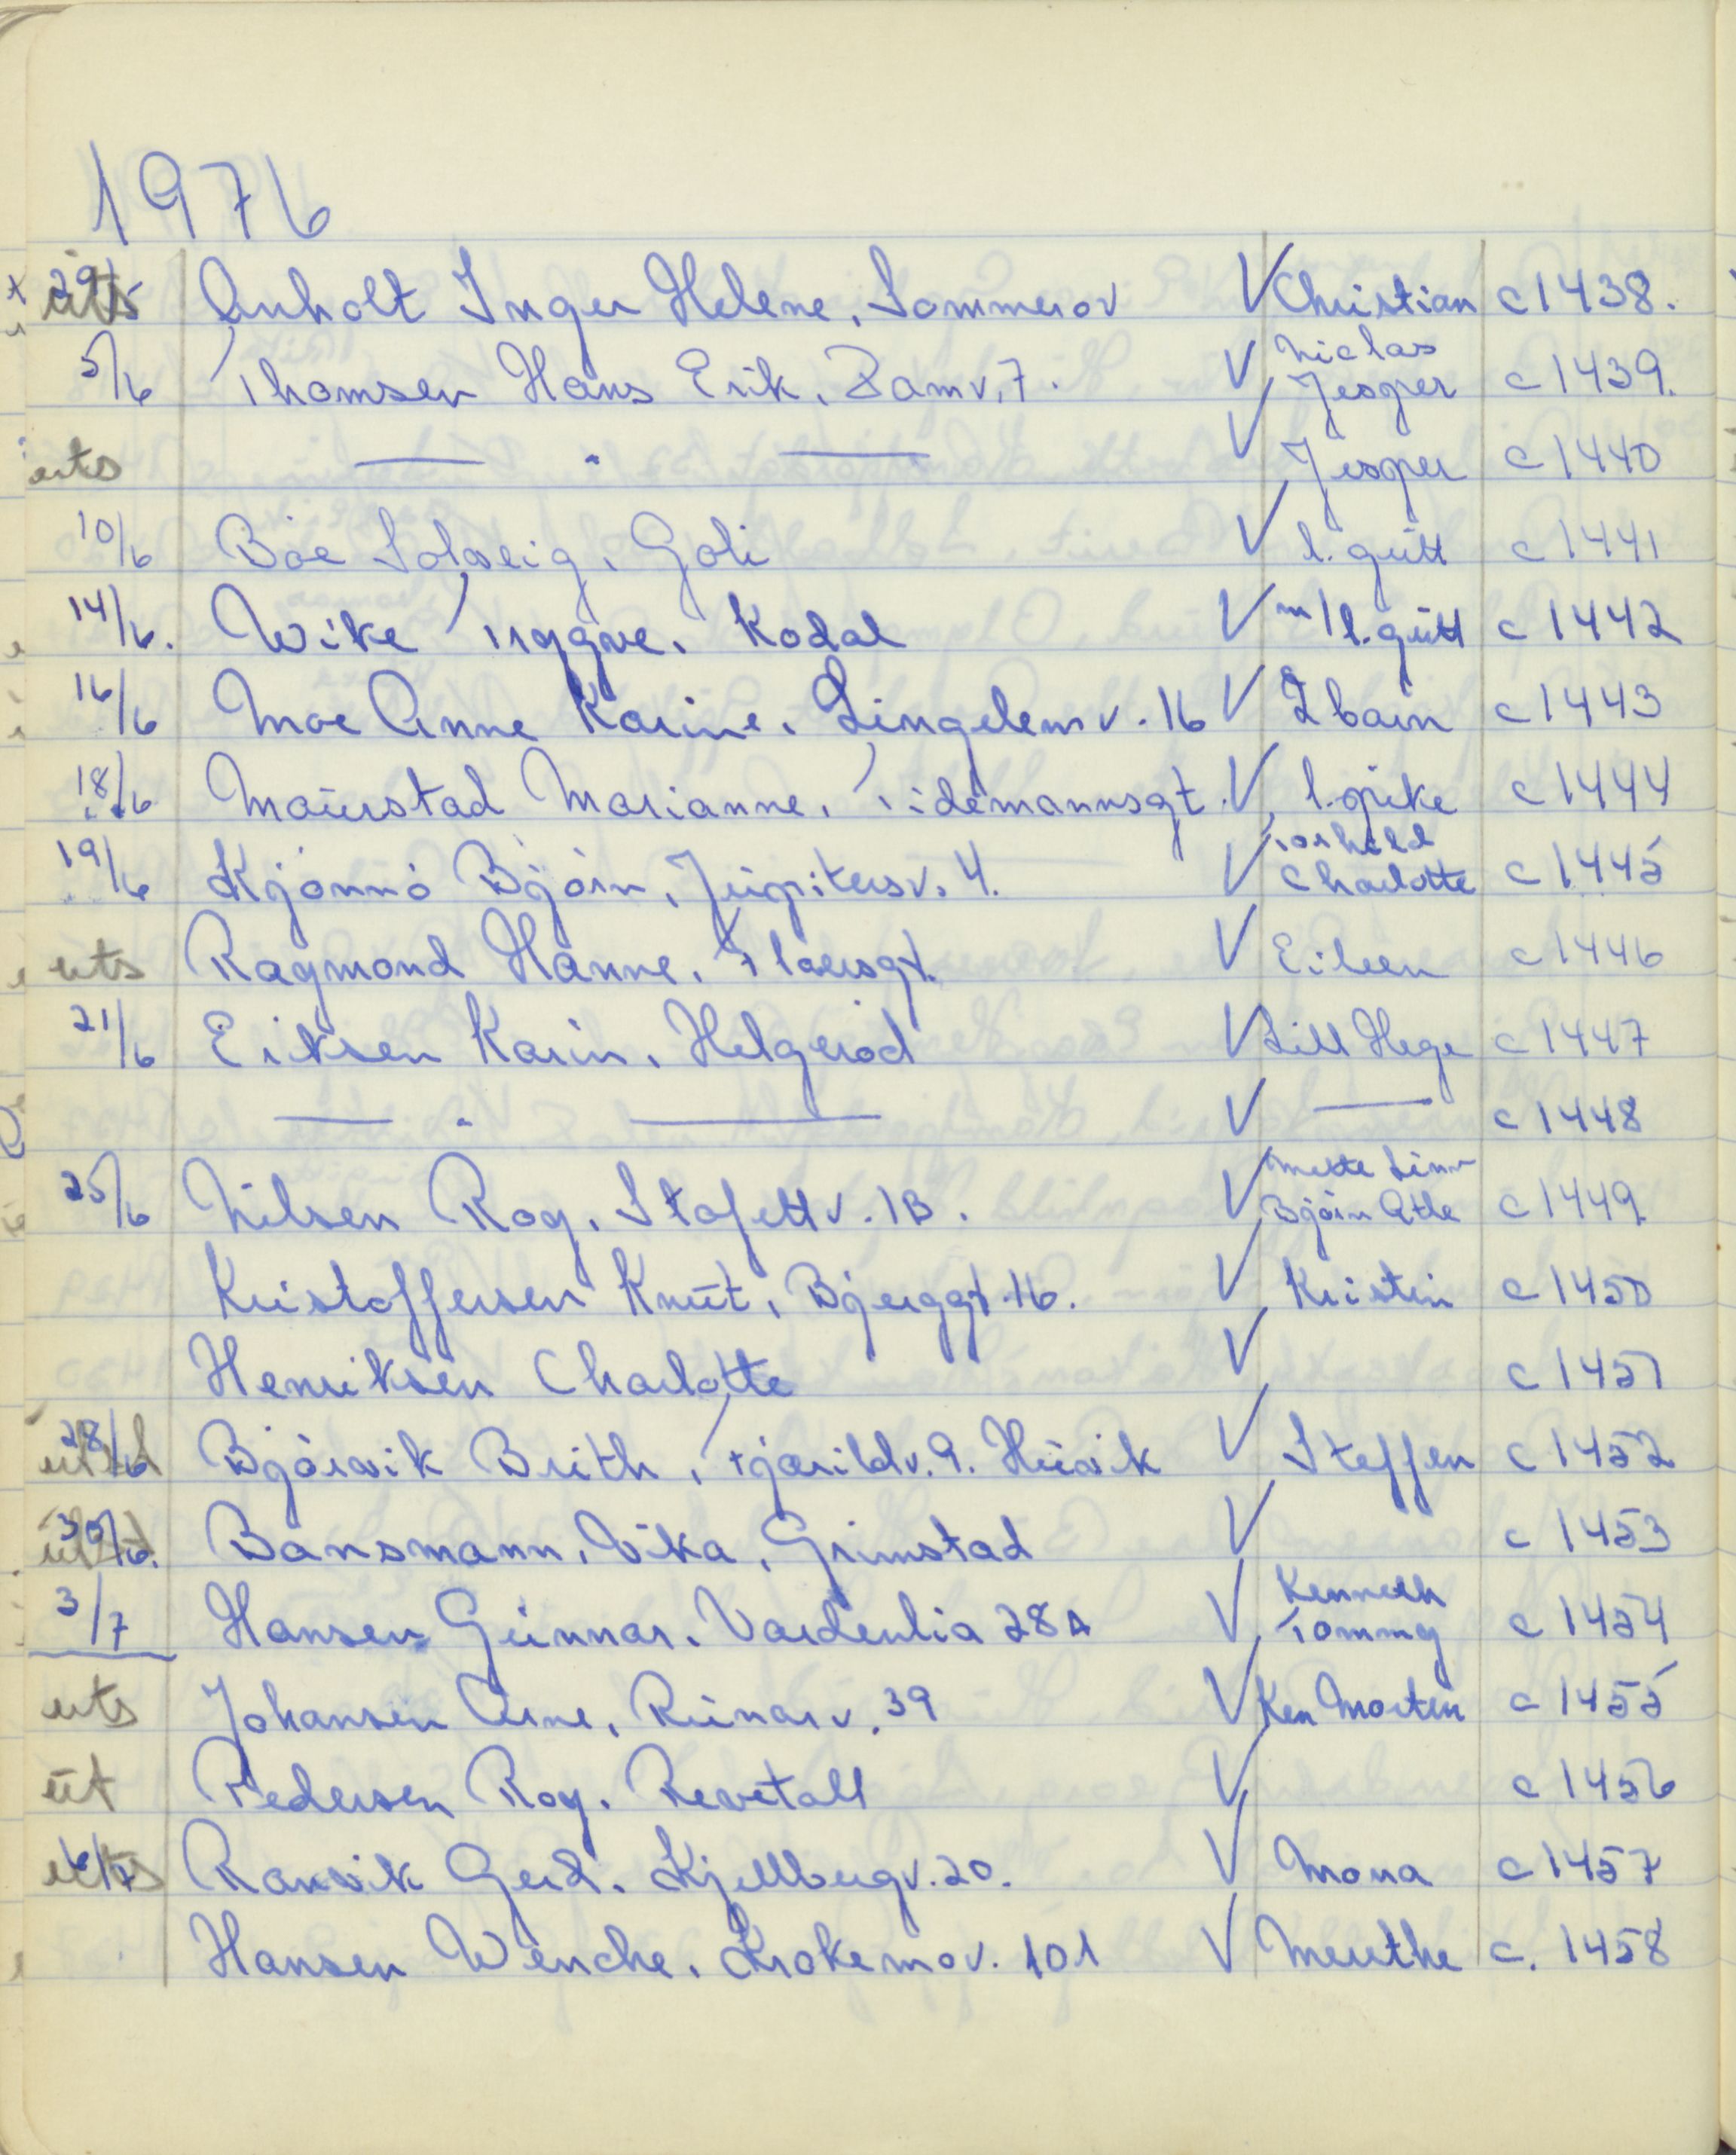 1976
29/5 uts Anholt Inger Helene, Sommerov V Christian c 1438.
5/6 Thomsen Hans Erik, Damv. 7. V Niclas Jesper c 1439.
uts — " — V Jesper c 1440
10/6 Bøe Solveig, Goli V l. gutt c 1441
14/6. Wike Tryggve, Kodal V m/l. gutt c 1442
16/6 Moe Anne Karine, Lingelemv. 16 V 2 barn c 1443
18/6 Maurstad Marianne, Tidemannsgt. V l. pike c 1444
19/6 Kjønnø Bjørn, Jupitersv. 4. V Torhild Charlotte c 1445
uts Raymond Hanne, Floersgt. V Eileen c 1446
21/6 Eriksen Karin, Helgerød V Lill Hege c 1447
— " — V — c 1448
25/6 Nilsen Roy, Stafettv. 1B. V Mette Linn Bjørn Atle c 1449
Kristoffersen Knut, Bjerggt. 16. V Kristin c 1450
Henriksen Charlotte V c 1451
28/6 Bjørvik Brith, Fjærildv. 9. Husvik V Steffen c 1452
30/6. Bansmann, Vika, Grimstad V c 1453
3/7 Hansen Gunnar, Vardenlia 28A V Kenneth Tommy c 1454
uts Johansen Arne, Runarv. 39 V Ken Morten c 1455
ut Pedersen Roy, Revetall V c 1456
6/7 uts Ranvik Gerd, Kjellbergv. 20. V Mona c 1457
Hansen Wenche, Krokemov. 101 V Merethe c. 1458